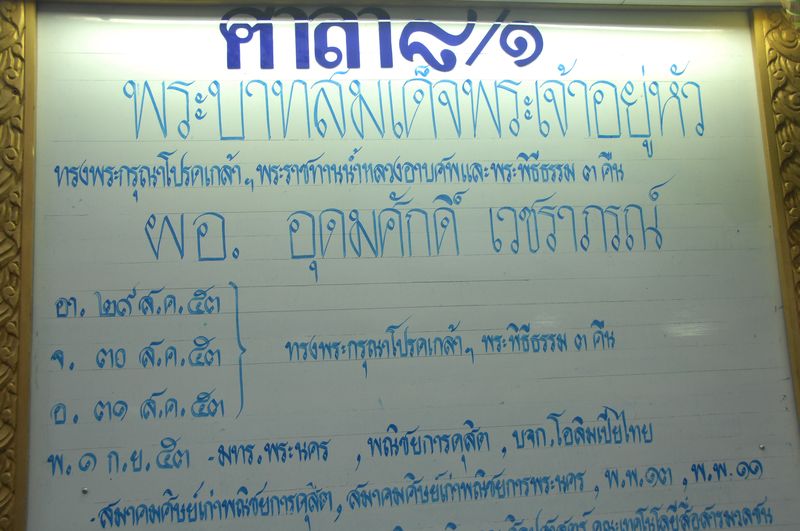 ศาลา๘/๑
พระบาทสมเด็จพระเจ้าอยู่หัว
ทรงพระกรุณาโปรดเกล้าฯ พระราชทานน้ำหลวงอาบศพและพระพิธีธรรม ๓ คืน
ผอ. อุดมศักดิ์ เวชราภรณ์
อา. ๒๙ ส.ค. ๕๓
จ. ๓๐ ส.ค. ๕๓ ทรงพระกรุณาโปรดเกล้าฯ พระพิธีธรรม ๓ คืน
อ. ๓๑ ส.ค. ๕๓
พ. ๑ ก.ย. ๕๓ - มทร.พระนคร , พณิชยการดุสิต , บจก.โอลิมเปียไทย
- สมาคมศิษย์เก่าพณิชยการดุสิต, สมาคมศิษย์เก่าพณิชยการพระนคร , พ.พ.๑๓ , พ.พ.๑๑
คณะเทคโนโลยีสื่อสารมวลชน